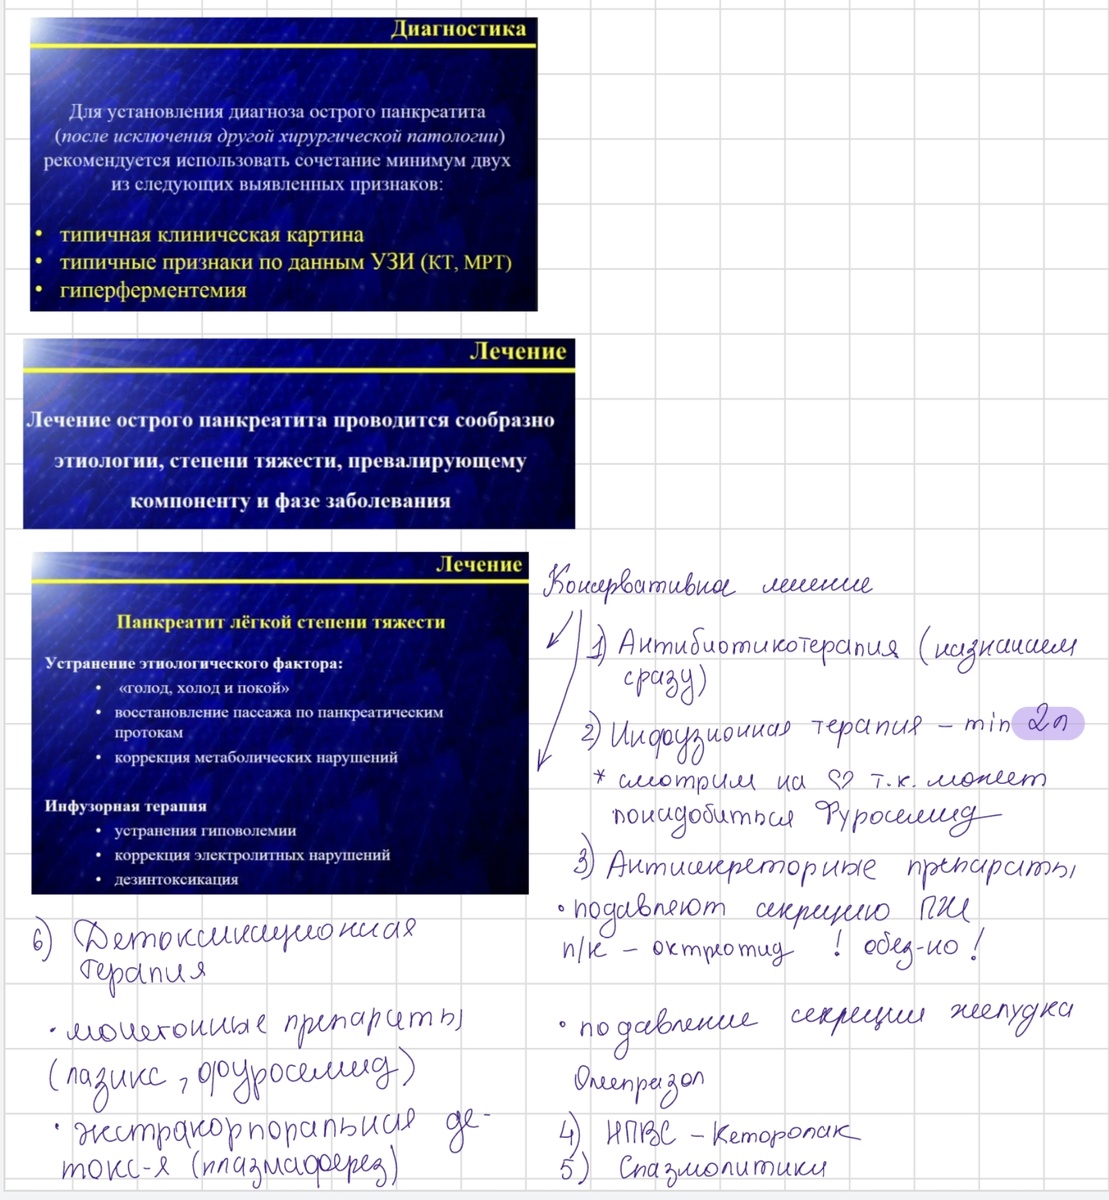 Диагностика
Для установления диагноза острого панкреатита
(после исключения другой хирургической патологии)
рекомендуется использовать сочетание минимум двух
из следующих выявленных признаков:
• типичная клиническая картина
• типичные признаки по данным УЗИ (КТ, МРТ)
• гиперферментемия
Лечение
Лечение острого панкреатита проводится сообразно
этиологии, степени тяжести, превалирующему
компоненту и фазе заболевания
Лечение
Панкреатит лёгкой степени тяжести
Устранение этиологического фактора:
• «голод, холод и покой»
• восстановление пассажа по панкреатическим
протокам
• коррекция метаболических нарушений
Инфузорная терапия
• устранения гиповолемии
• коррекция электролитных нарушений
• дезинтоксикация
Консервативное лечение
1) Антибиотикотерапия (назначаем
сразу)
2) Инфузионная терапия – min 2л
* смотрим на ♡ т.к. может
понадобиться Фуросемид
3) Антисекреторные препараты
• подавляют секрецию ПЖ
п/к – октреотид ! обяз-но !
• подавление секреции желудка
Омепразол
4) НПВС – Кеторолак
5) Спазмолитики
6) Детоксикационная
терапия
• мочегонные препараты
(лазикс, фуросемид)
• экстракорпоральная де-
токс-я (плазмаферез)